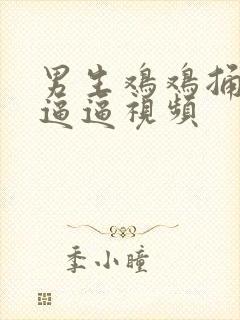 男生鸡鸡捅
逼逼視頻
季小瞳